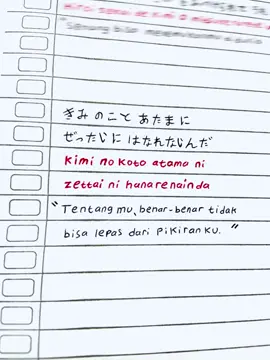 きみ の こと あたま に
ぜったい に はなれないんだ
Kimi no koto atama ni
zettai ni hanarenainda
"Tentang mu, benar-benar tidak
bisa lepas dari pikiran ku."